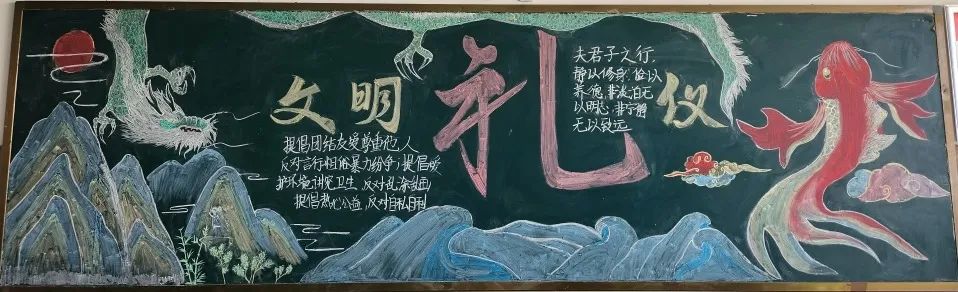 文明礼仪
提倡团结友爱尊重他人
反对言行粗俗暴力纷争;提倡爱
护环境讲究卫生、反对乱涂乱画
提倡热心公益,反对自私自利
夫君子之行,
静以修身,俭以
养德,非淡泊无
以明志,非宁静
无以致远